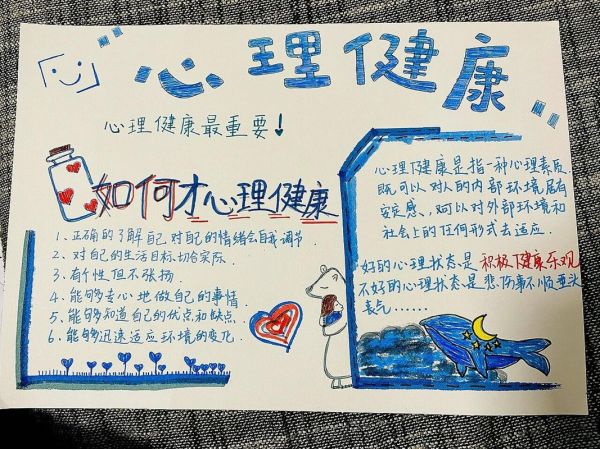 心理健康
心理健康最重要!
如何才心理健康
1、正确的了解自己对自己的情绪会自我调节.
2、对自己的生活目标切合实际.
3、有个性但不张扬
4、能够专心地做自己的事情.
5、能够知道自己的优点和缺点
6、能够迅速适应环境的变化.
心理健康是指一种心理素质.
既可以对人的内部环境居有
安定感、可以对外部环境和
社会上的任何形式去适应.
好的心理状态、是积极健康乐观
不好的心理状态、是悲伤事不顺垂头
丧气......